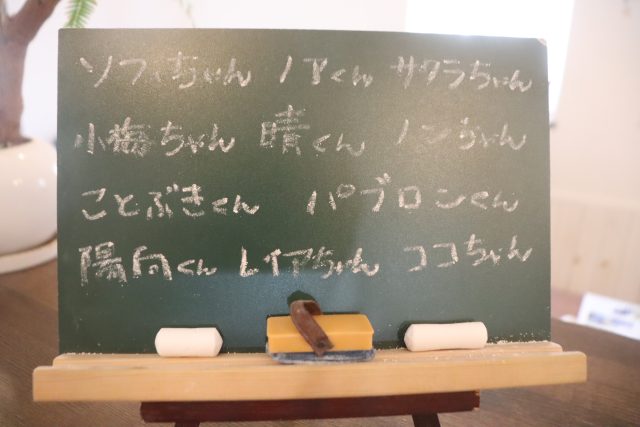 ソフィちゃん ノアくん サクラちゃん
小梅ちゃん 晴くん ノンちゃん
ことぶきくん パブロンくん
陽向くん レイアちゃん ココちゃん